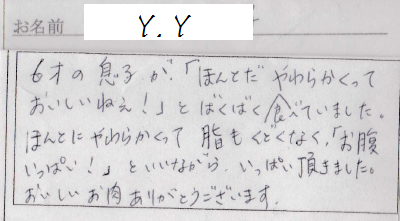 お名前 Y.Y
6才の息子が、「ほんとだ やわらかくって
おいしいねぇ！」とばくばく食べていました。
ほんとにやわらかくって 脂もくどくなく、「お腹
いっぱい！」といいながら、いっぱい頂きました。
おいしいお肉ありがとうございます。